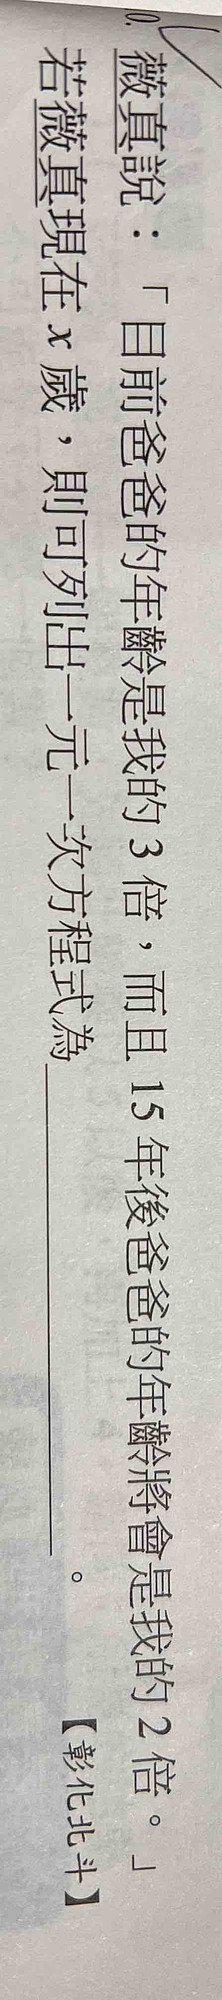 0.
薇真說：「目前爸爸的年齡是我的 3 倍，而且 15 年後爸爸的年齡將會是我的 2 倍。」
若薇真現在 x 歲，則可列出一元一次方程式為____________。【彰化北斗】